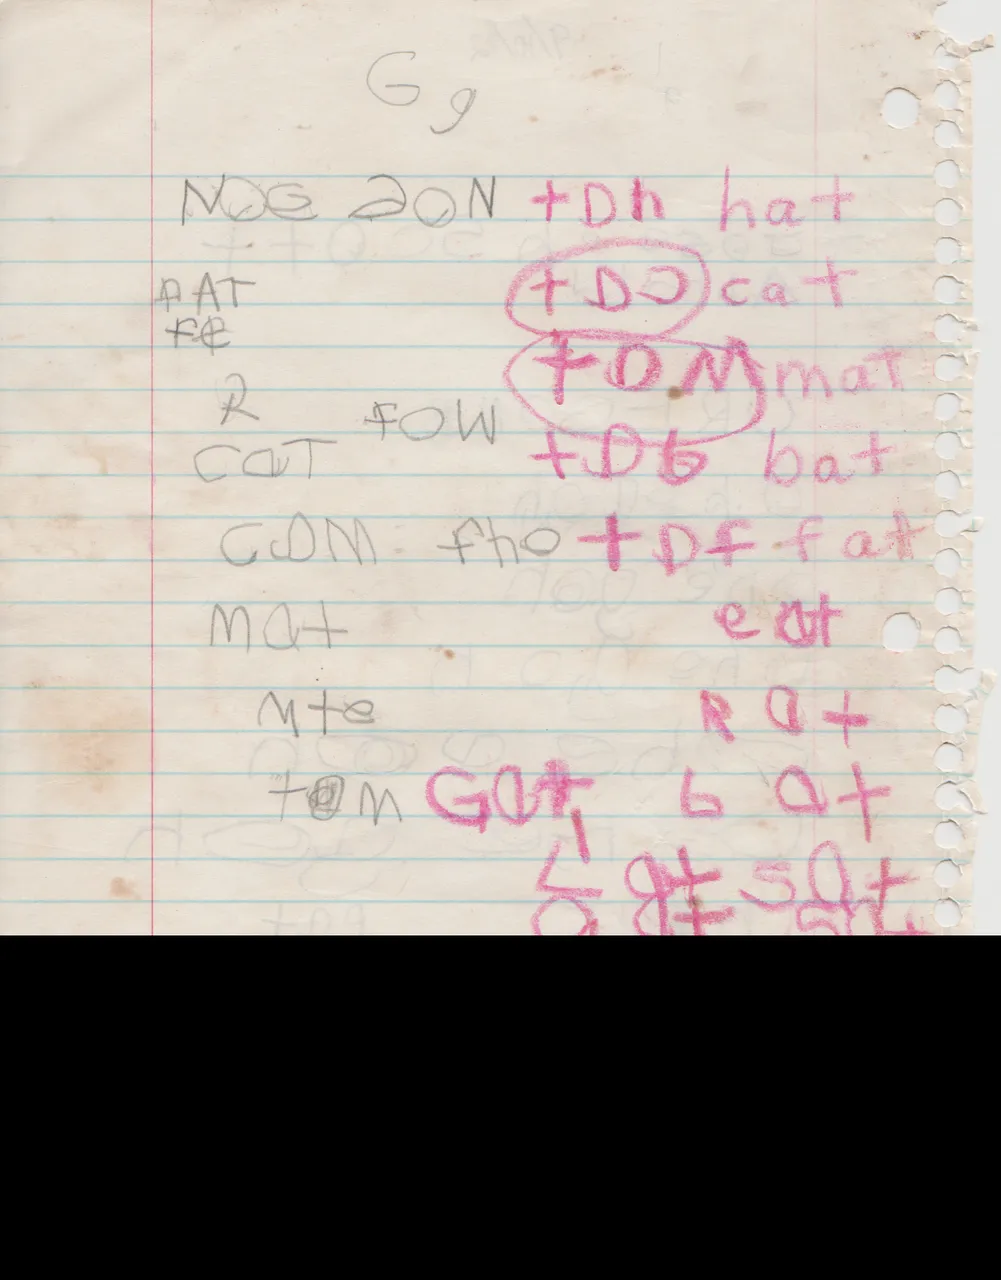 G g
NOG ƧON +Dh hat
AAT +DƆ cat
Fe
+DM mat
R FOW
CaT +Db bat
CDM fho +Df fat
mat eat
Mte Rat
tam Gat bat
gt sat